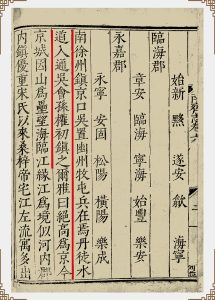 始新 黟 遂安 歙 海寧
臨海郡
章安 臨海 寧海 始豐 樂安
永嘉郡
永寧 安固 松陽 橫陽 樂成
南徐州鎮京口吳置幽州牧屯兵在焉丹徒水
道入通吳會孫權初鎮之爾雅曰絕高為京今
京城因山為壘望海臨江緣江為境似河內郡
內鎮優重宋氏以來桑梓帝宅江左流寓多出